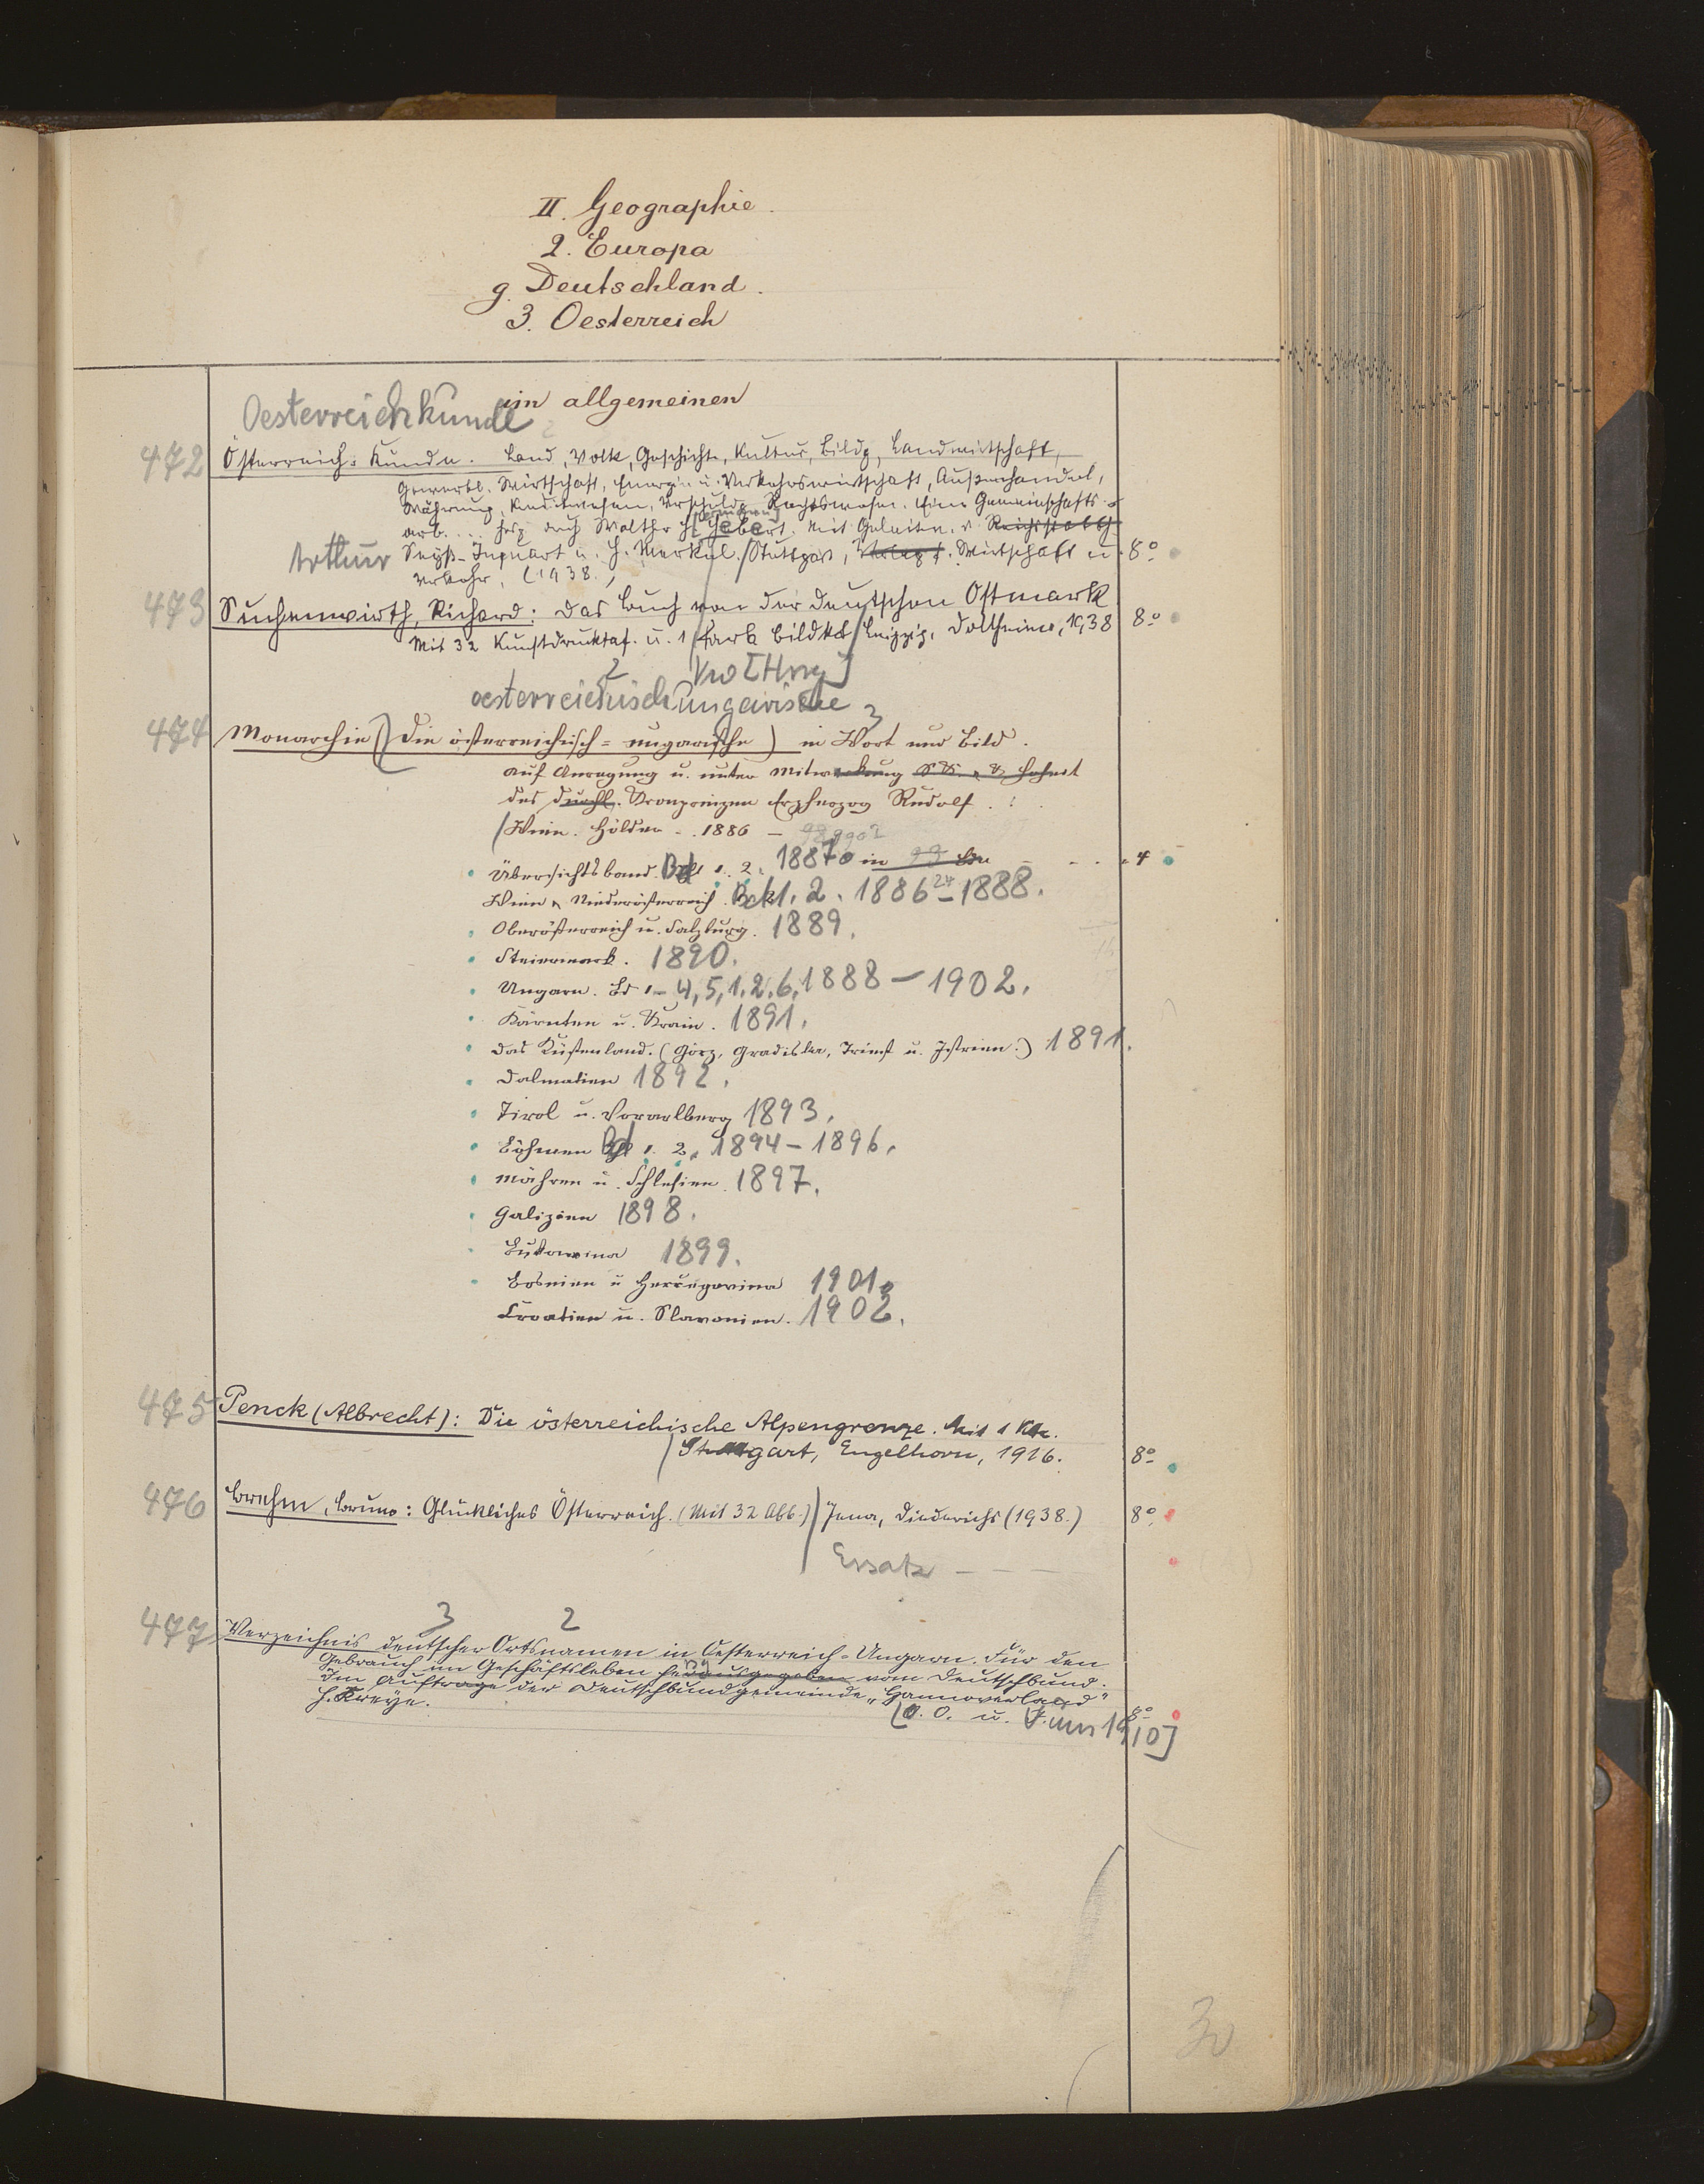 II. Geographie.
2. Europa
g. Deutschland.
3. Oesterreich
im allgemeinen
Oesterreichkunde
472 Österreich-Kunde. Land, Volk, Geschichte, Kultur, Bildg, Landwirtschaft,
Gewerbl. Wirtschaft, Energie u. Verkehrswirtschaft, Außenhandel,
Währung, Kreditwesen, Verschuldg, Rechtswesen. Eine Gemeinschafts-
arb. ... hrsg durch Walther H[ermann] Hebert. Mit Geleitw. v. Reichsstatth.
Arthur Seyß-Inquart u. H. Merkel. / Stuttgart, Verlag f. Wirtschaft u. 8°
Verkehr, (1938.)
473 Suchenwirth, Richard: Das Buch von der deutschen Ostmark
Mit 32 Kunstdrucktaf. u. 1 farb Bildkt / Leipzig, Dollheimer, 1938 8°
2
oesterreichisch ungarische 3
474 Monarchie (Die österreichisch-ungarische) in Wort und Bild.
auf Anregung u. unter Mitwirkung
des durchl. Kronprinzen Erzherzog Rudolf.
/ Wien. Hölder - . 1886 -
Übersichtsband. Bd 1. 2. 1887 in 4
Wien u Niederösterreich. Bd 1. 2. 1886 - 1888. 24
Oberösterreich u. Salzburg. 1889.
Steiermark. 1890.
Ungarn. Bd 1-4, 5,1.2.6, 1888 - 1902.
Kärnten u. Krain. 1891.
Das Küstenland. (Görz, Gradiska, Triest u. Istrien.) 1891.
Dalmatien 1892.
Tirol u. Vorarlberg 1893.
Böhmen Bd 1. 2. 1894 - 1896.
Mähren u. Schlesien. 1897.
Galizien 1898.
Bukowina 1899.
Bosnien u Hercegovina 1901.
Croatien u. Slavonien. 1902.
475 Penck (Albrecht): Die österreichische Alpengrenze. Mit 1 Kte.
/ Stuttgart, Engelhorn, 1916. 8°
476 Brehm, Bruno: Glückliches Österreich. (Mit 32 Abb.) / Jena, Diederichs (1938.) 8°
Ersatz - - -
3 2
477 Verzeichnis deutscher Ortsnamen in Oesterreich-Ungarn. Für den
Gebrauch im Geschäftsleben herausgegeben vom Deutschbund.
Im Auftrage der Deutschbundgemeinde „Hannoverland"
H. Kreye. 8°
[o. O. u. J. um 1910]